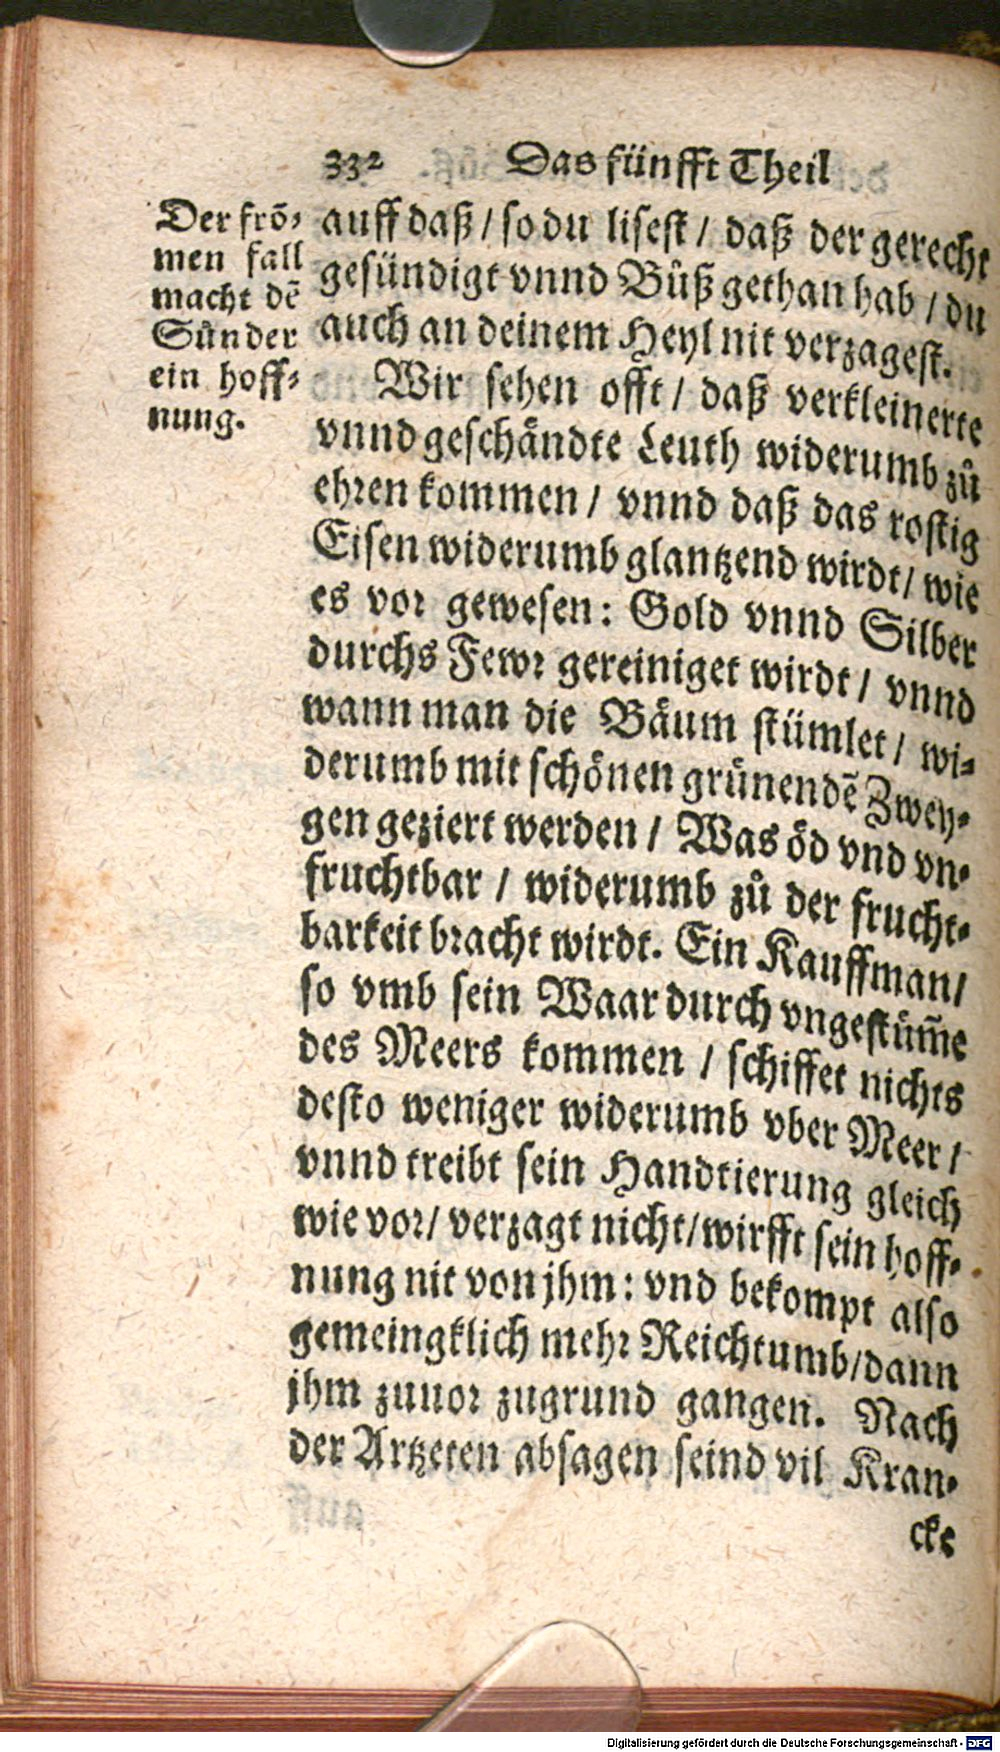 332 Das fünfft Theil
Der frõ-
men fall
macht dẽ
Sünder
ein hoff-
nung.
auff daß / so du lisest / daß der gerecht
gesündigt vnnd Bůß gethan hab / du
auch an deinem Heyl nit verzagest.
Wir sehen offt / daß verkleinerte
vnnd geschändte Leuth widerumb zů
ehren kommen / vnnd daß das rostig
Eisen widerumb glantzend wirdt / wie
es vor gewesen: Gold vnnd Silber
durchs Fewr gereiniget wirdt / vnnd
wann man die Bäum stümlet / wi-
derumb mit schönen grünendẽ Zwey-
gen geziert werden / Was öd vnd vn-
fruchtbar / widerumb zů der frucht-
barkeit bracht wirdt. Ein Kauffman /
so vmb sein Waar durch vngestüm̃e
des Meers kommen / schiffet nichts
desto weniger widerumb vber Meer /
vnnd treibt sein Handtierung gleich
wie vor / verzagt nicht / wirfft sein hoff-
nung nit von jhm: vnd bekompt also
gemeingklich mehr Reichtumb / dann
jhm zuuor zugrund gangen. Nach
der Artzeten absagen seind vil Kran-
cke
Digitalisierung gefördert durch die Deutsche Forschungsgemeinschaft - DFG